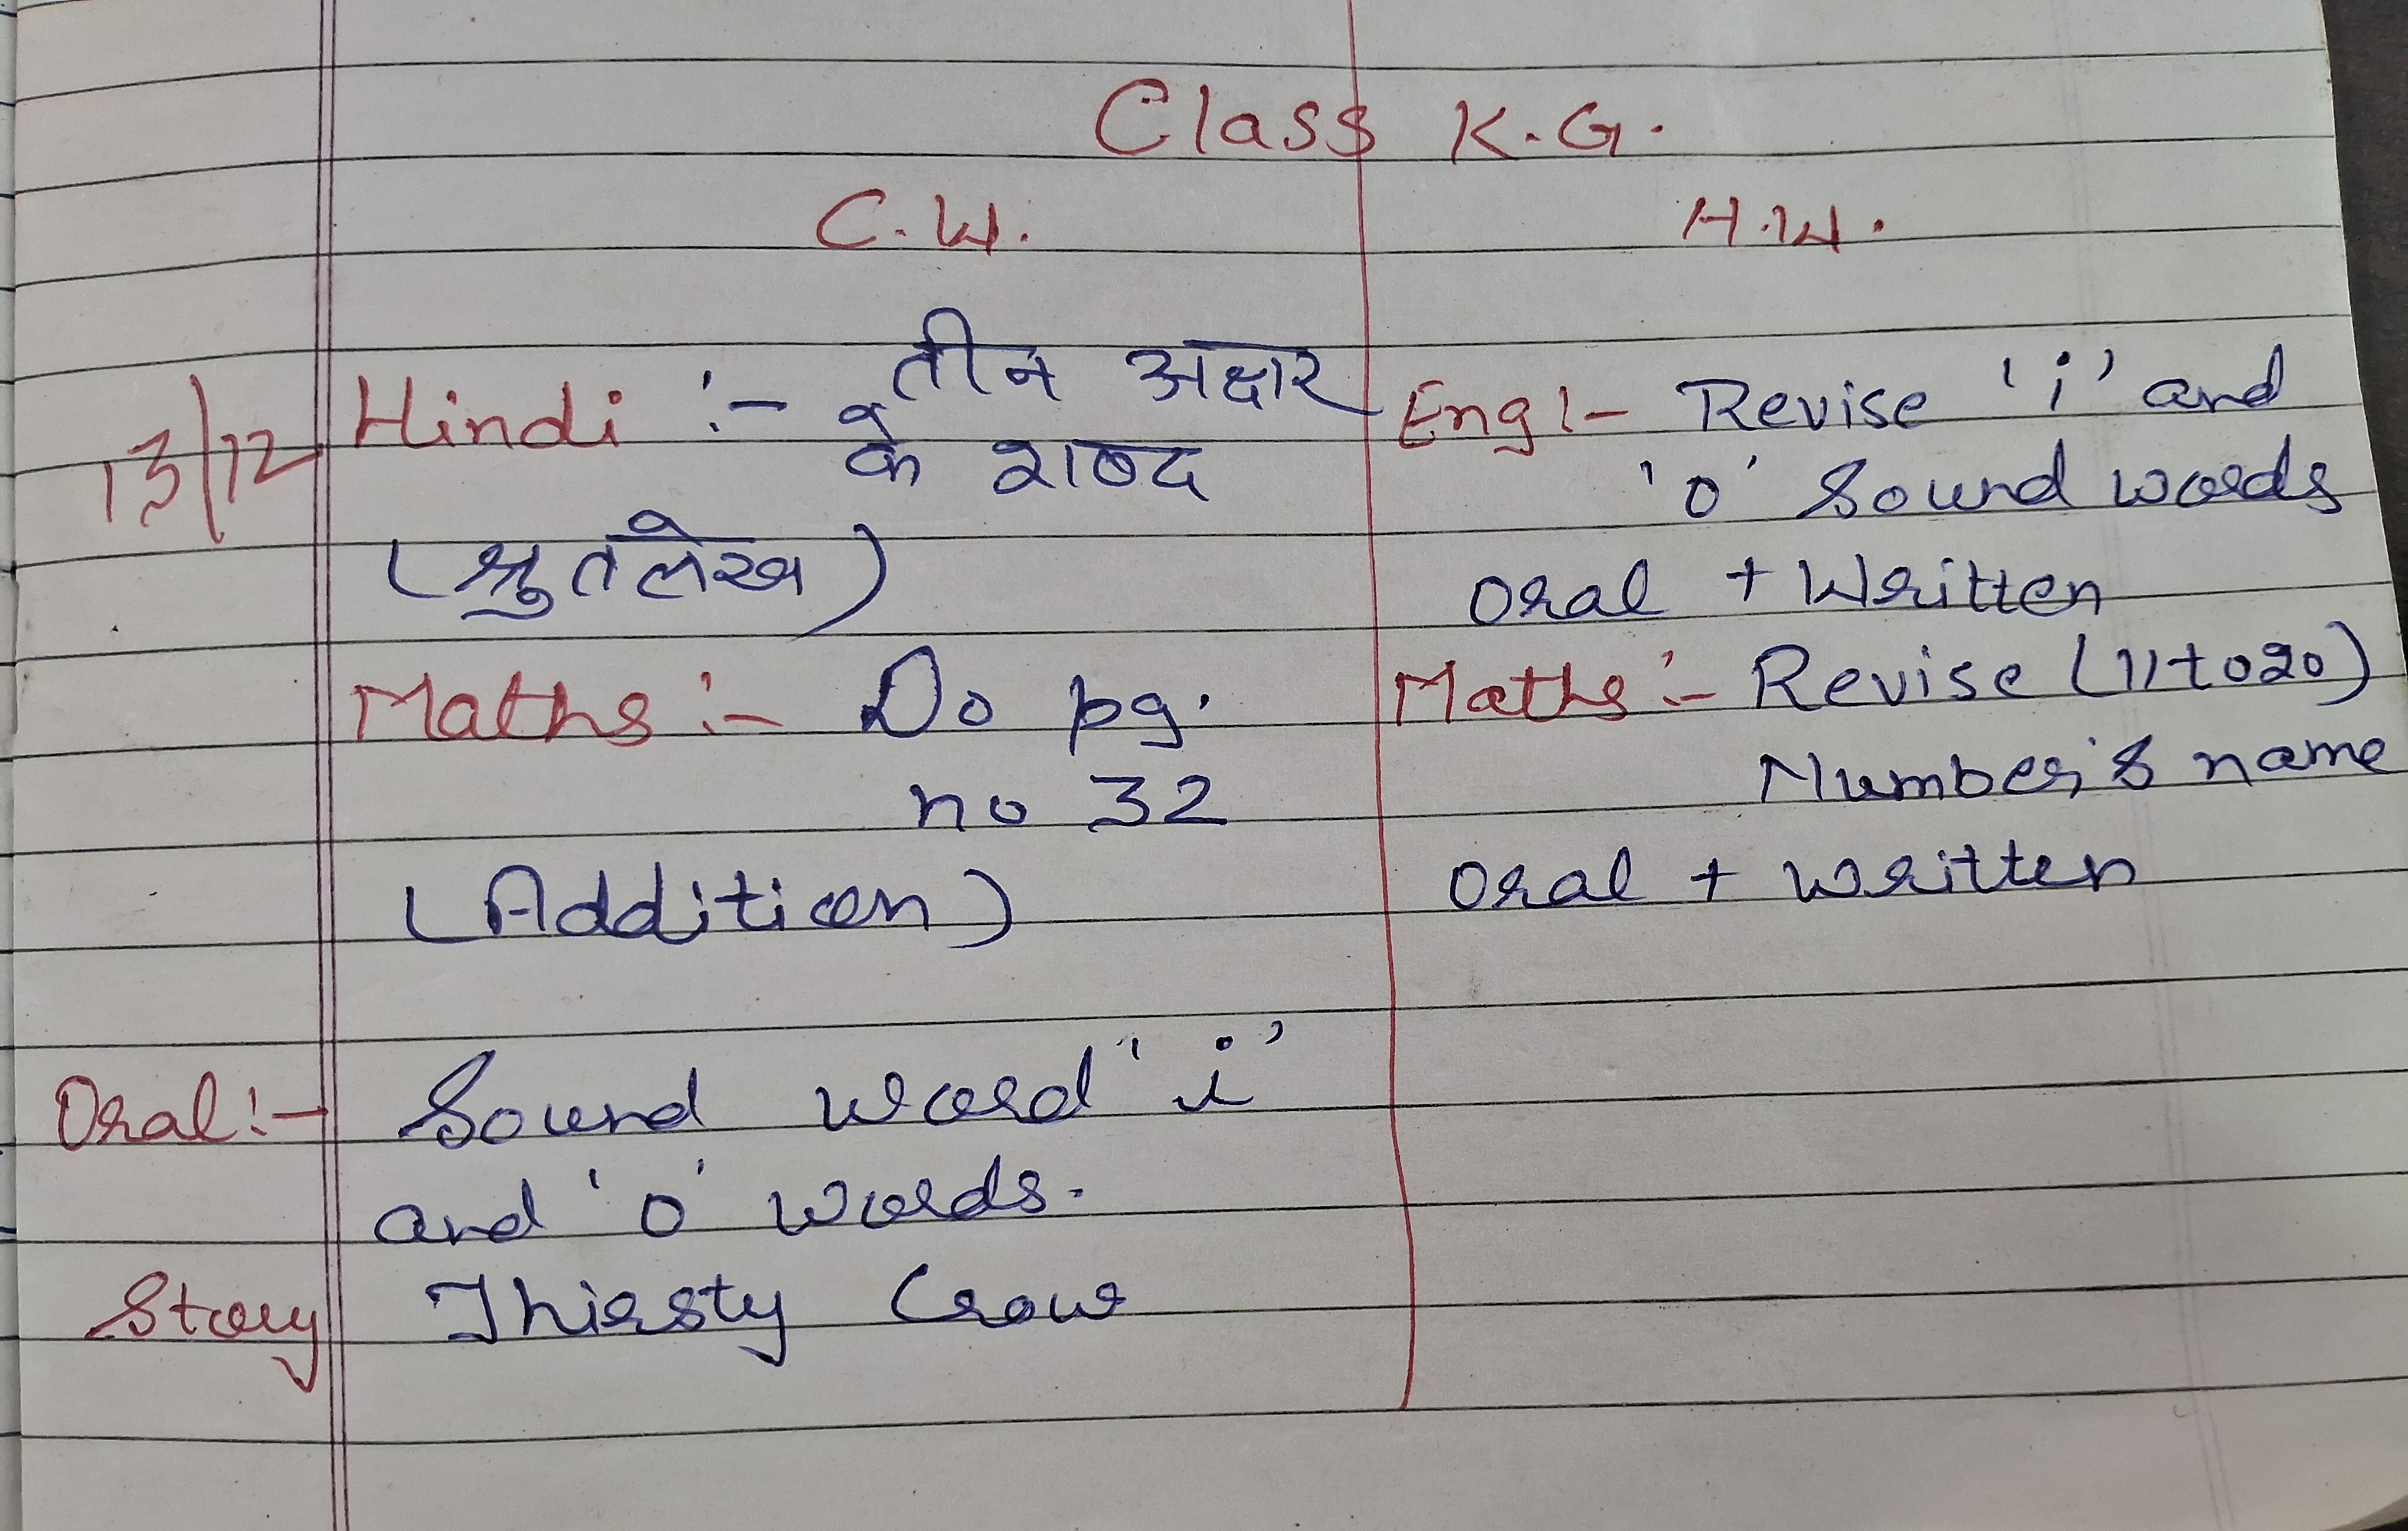 Class K.G.
C.W.
H.W.
13/12
Hindi :- तीन अक्षर
के शब्द
(श्रुतलेख)
Maths :- Do pg.
no 32
(Addition)
Oral :- Sound word 'i'
and 'o' words.
Story Thirsty Crow
Eng :- Revise 'i' and
'o' Sound words
Oral + Written
Maths :- Revise (11 to 20)
Number's name
Oral + written